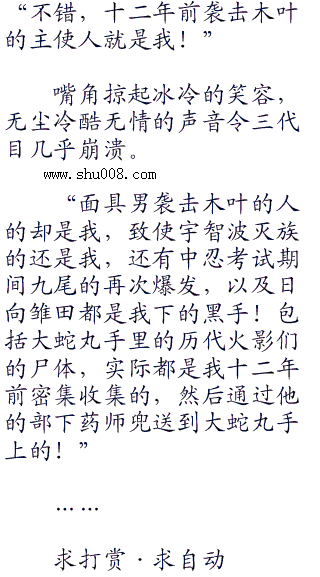 “不错，十二年前袭击木叶
的主使人就是我！”
嘴角掠起冰冷的笑容，
无尘冷酷无情的声音令三代
目几乎崩溃。
www.shu008.com
“面具男袭击木叶的人
的却是我，致使宇智波灭族
的还是我，还有中忍考试期
间九尾的再次爆发，以及日
向雏田都是我下的黑手！包
括大蛇丸手里的历代火影们
的尸体，实际都是我十二年
前密集收集的，然后通过他
的部下药师兜送到大蛇丸手
上的！”
……
求打赏·求自动